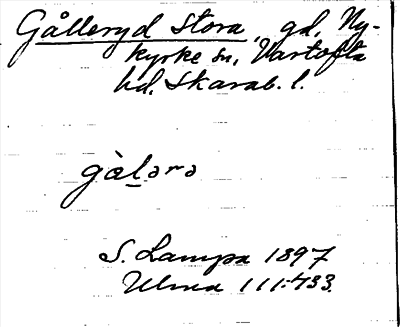 Gålleryd Stora, gd, Ny-
kyrke sn, Vartofta
hd, Skarab. l.
gàl̠ərə
S. Lampa 1897
Ulma 111:433.